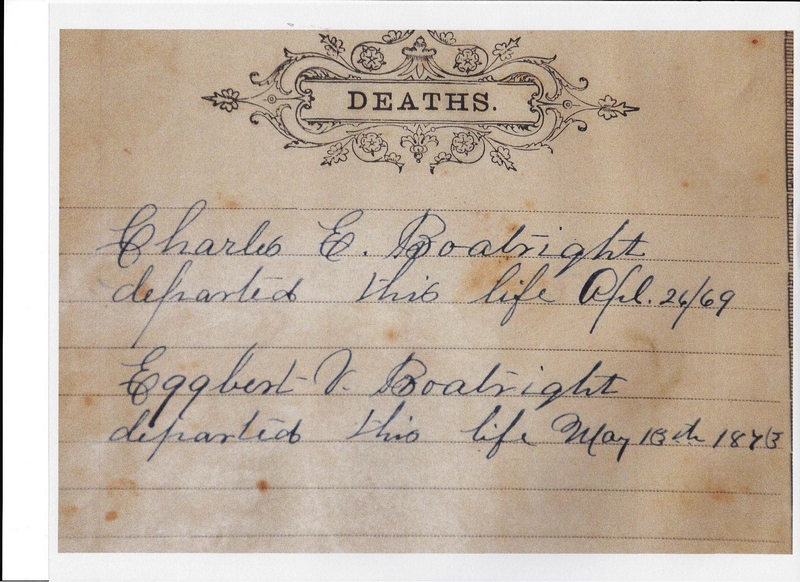 DEATHS.
Charles E. Boatright
departed this life Apl. 26/69
Eggbert V. Boatright
departed this life May 13th 1873